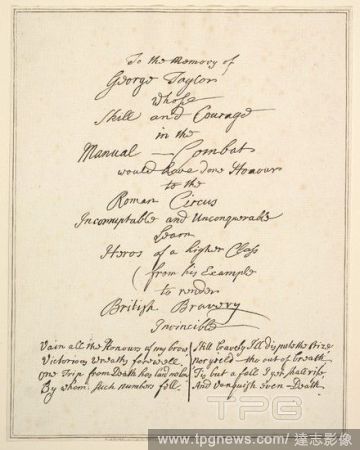 To the Memory of
George Taylor
whose
Skill and Courage
in the
Manual — Combat
would have done Honour
to the
Roman Circus
Incorruptable and Unconquerable
Learn
Heros of a higher Class
(from his Example
to render
British Bravery
Invincible
Vain all the Honours of my brow
Victorious Wreaths farewell
One Trip from Death has laid me low
By whom such numbers fell.
Still bravely I'll dispute the Prize
nor yield — tho out of breath
Tis but a fall I yet shall rise
And Vanquish even — Death
TPG
www.tpgnews.com / 達志影像